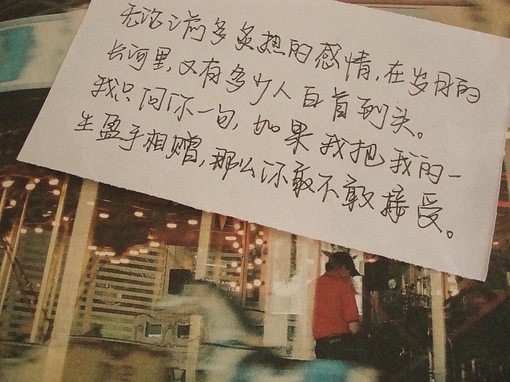 无论从前多炙热的感情，在岁月的
长河里，又有多少人白首到头。
我只问你一句，如果我把我的一
生盈手相赠，那么你敢不敢接受。